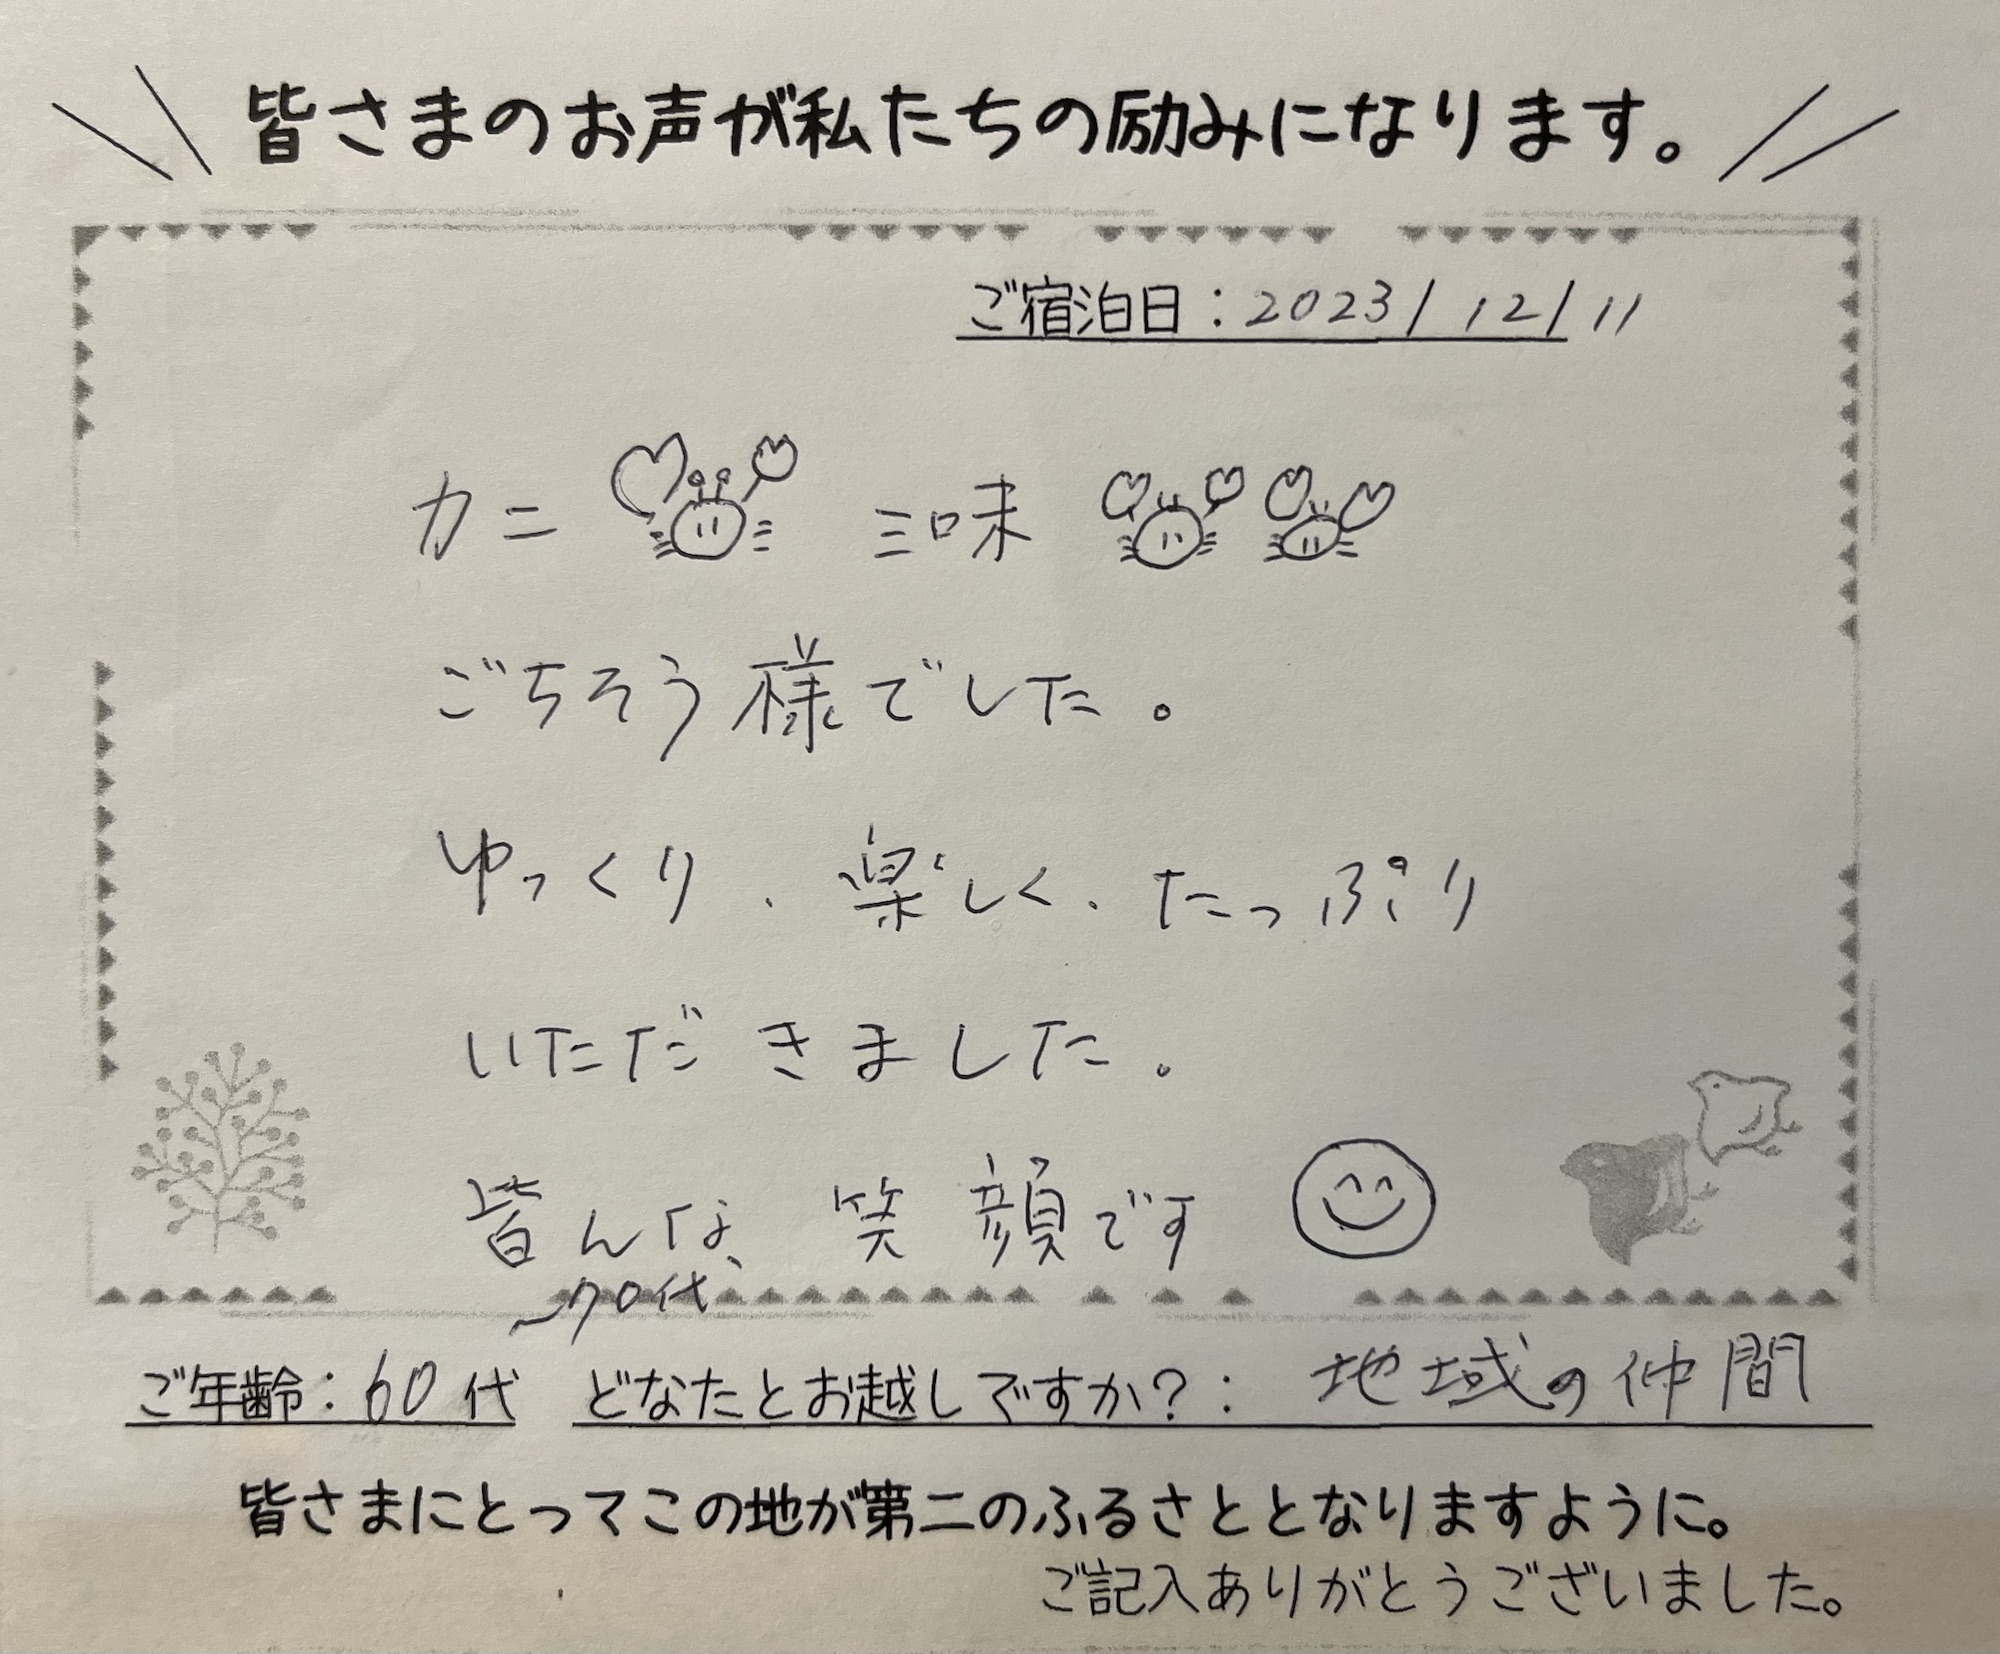 皆さまのお声が私たちの励みになります。
ご宿泊日：2023/12/11
カニ 三味
ごちそう様でした。
ゆっくり、楽しく、たっぷり
いただきました。
皆んな、笑顔です
〜70代
ご年齢：60代 どなたとお越しですか？：地域の仲間
皆さまにとってこの地が第二のふるさととなりますように。
ご記入ありがとうございました。